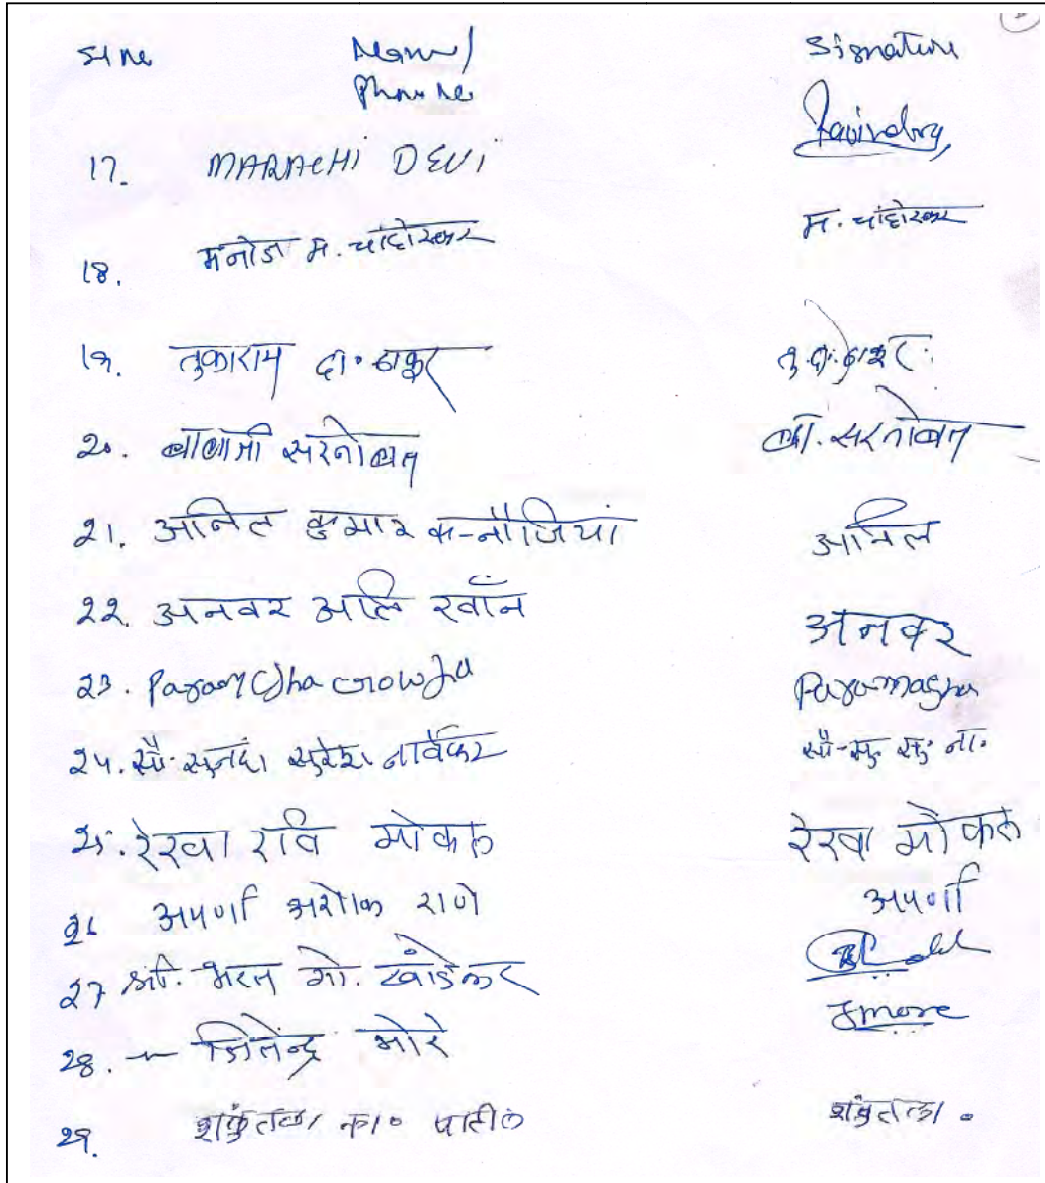 Sl no Name/ Signature
Phone no
17. MARACHI DEVI Ravindra
18. मनोज म. चांदोरकर म. चांदोरकर
19. तुकाराम दा. ठाकूर तु.दा.ठाकूर
20. बालाजी सरनोबत बा. सरनोबत
21. अनिल कुमार कन्नौजिया अनिल
22. अनवर अलि खाँन अनवर
23.
24. सौ. सुनंदा सुरेश नार्वेकर सौ-सु. सु. ना.
25. रेखा रवि मोकल रेखा मोकल
26 अपर्णा अशोक राणे अपर्णा
27 श्री. भरत गो. खांडेकर
28. जितेंद्र मोरे Jmore
29. शकुंतला का० पाटील शकुंतला.